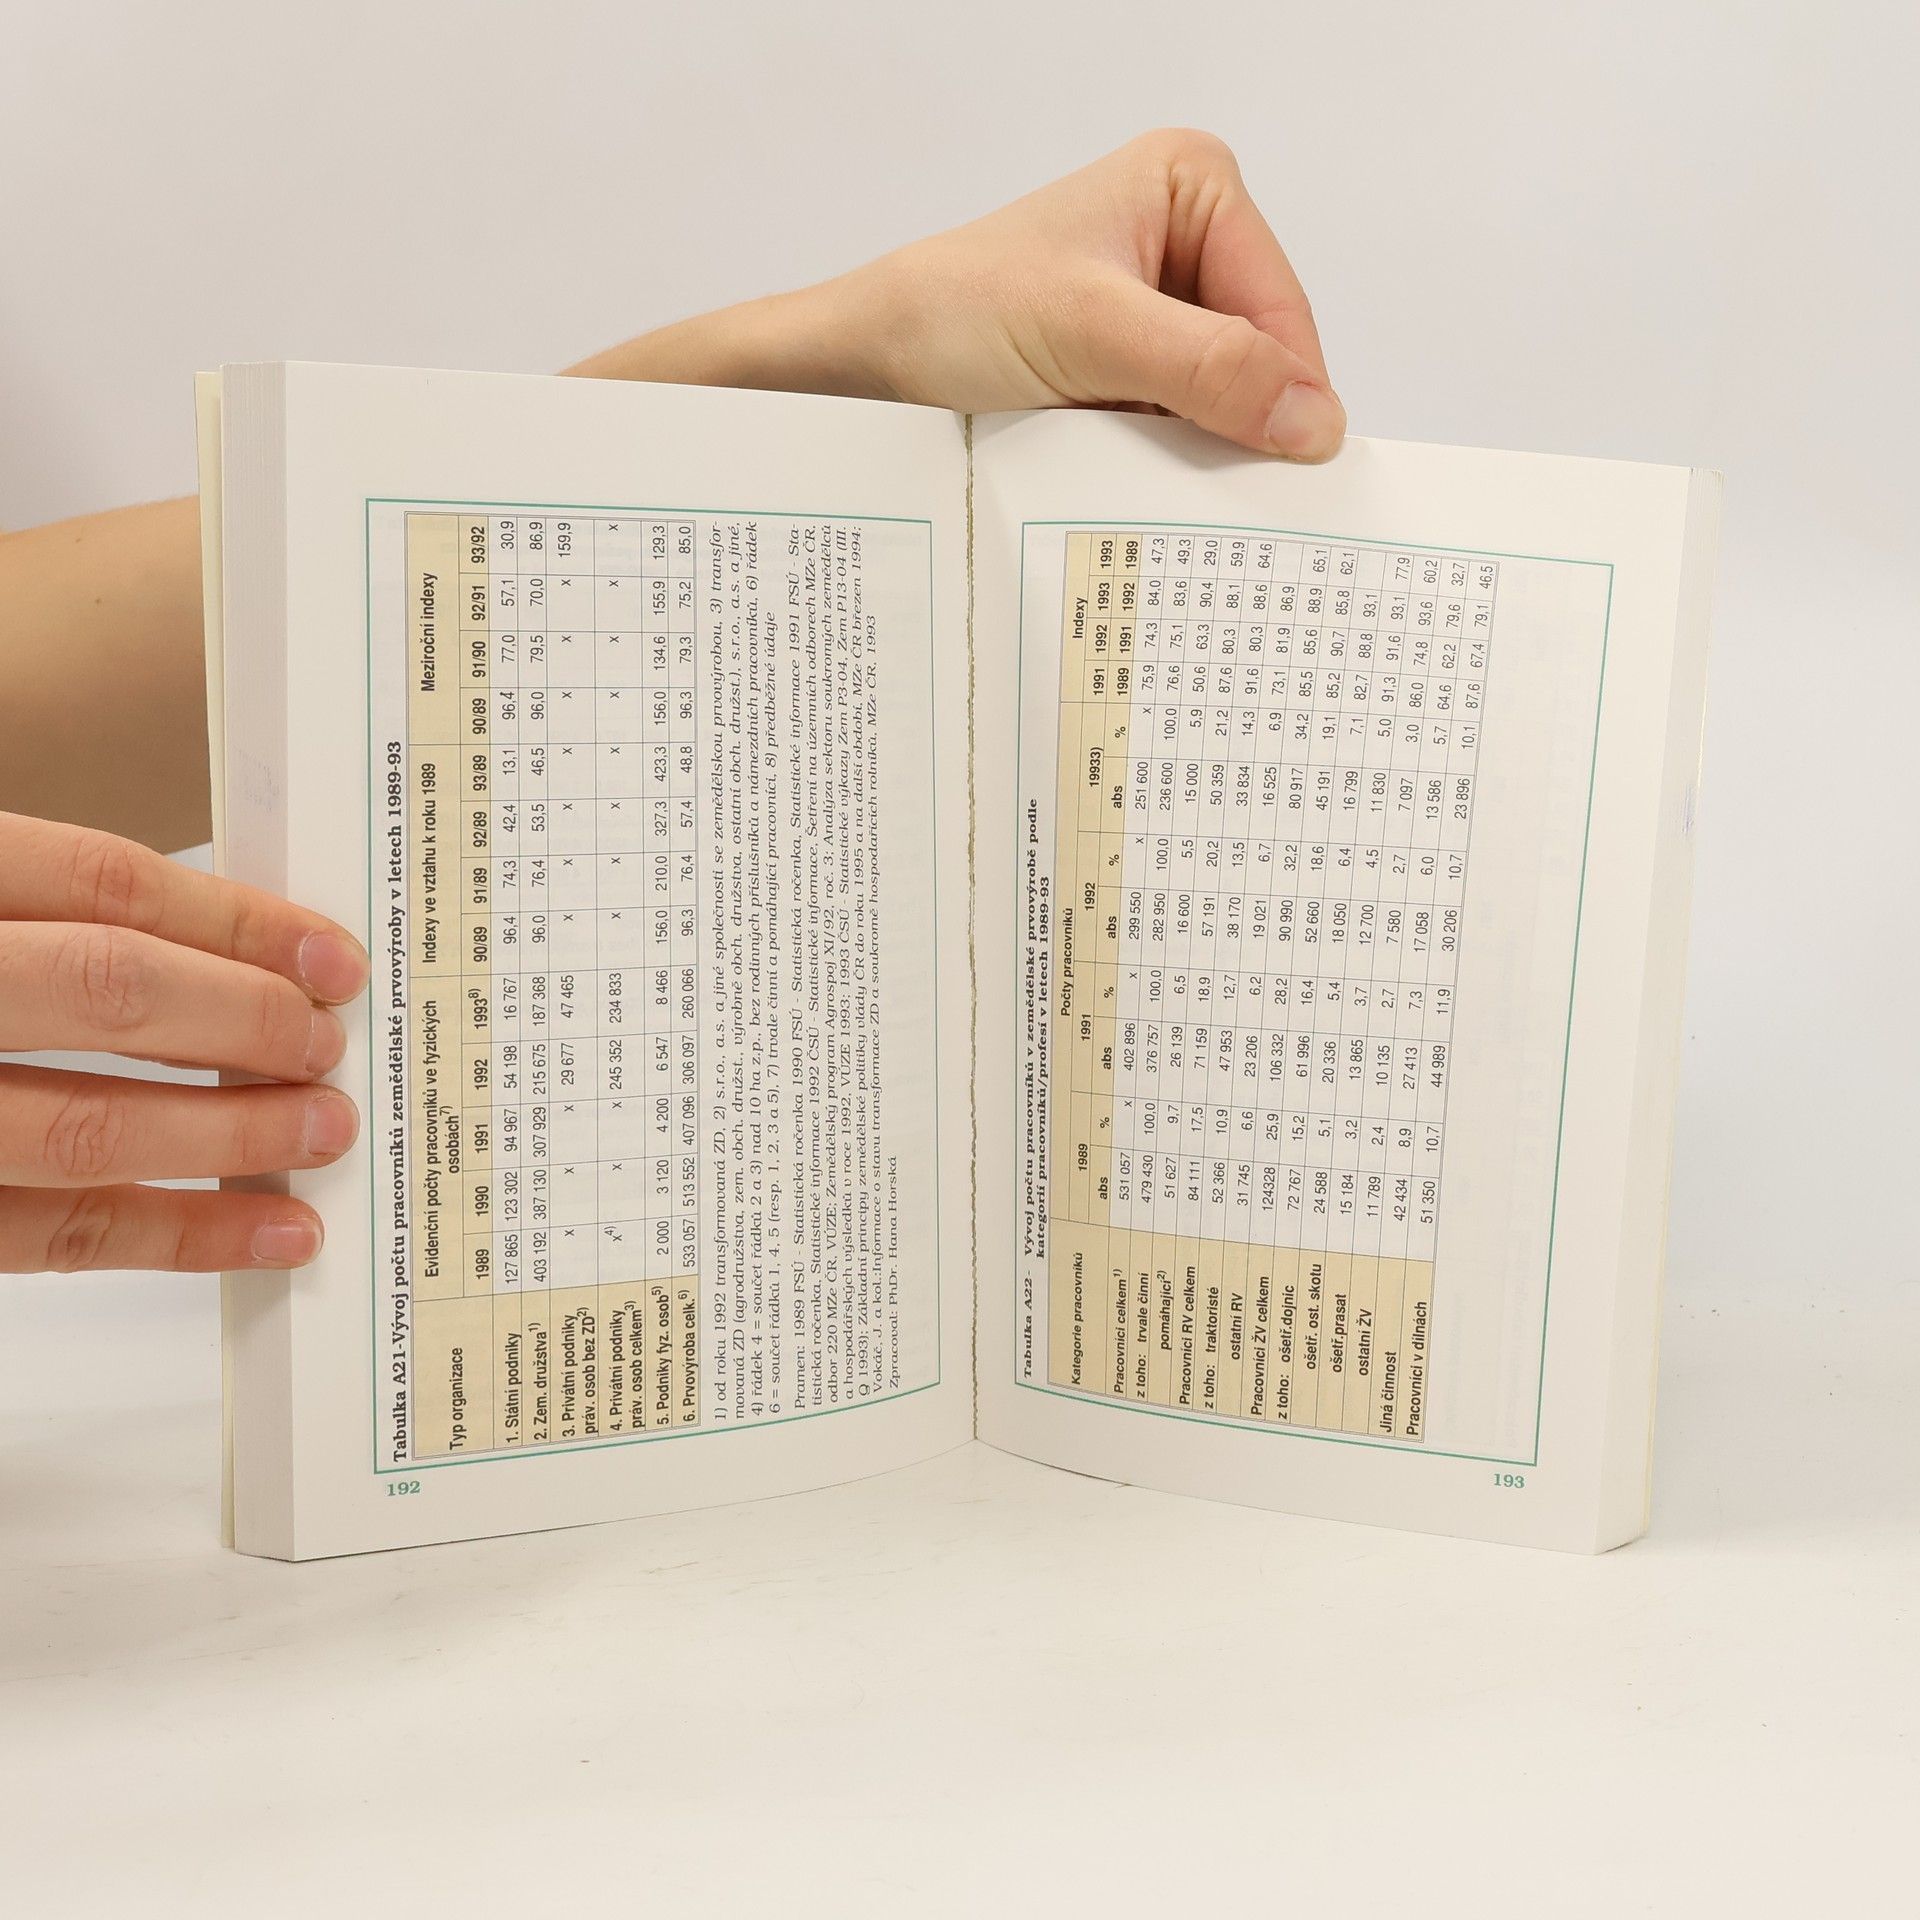 Tabulka A21-Vývoj počtu pracovníků zemědělské prvovýroby v letech 1989-93
Typ organizace Evidenční počty pracovníků ve fyzických osobách7) Indexy ve vztahu k roku 1989 Meziroční indexy
1989 1990 1991 1992 19938) 90/89 91/89 92/89 93/89 90/89 91/90 92/91 93/92
1. Státní podniky 127 865 123 302 94 967 54 198 16 767 96,4 74,3 42,4 13,1 96,4 77,0 57,1 30,9
2. Zem. družstva1) 403 192 387 130 307 929 215 675 187 368 96,0 76,4 53,5 46,5 96,0 79,5 70,0 86,9
3. Privátní podniky
práv. osob bez ZD2) x x x 29 677 47 465 x x x x x x x 159,9
4. Privátní podniky
práv. osob celkem3) x4) x x 245 352 234 833 x x x x x x x x
5. Podniky fyz. osob5) 2 000 3 120 4 200 6 547 8 466 156,0 210,0 327,3 423,3 156,0 134,6 155,9 129,3
6. Prvovýroba celk.6) 533 057 513 552 407 096 306 097 260 066 96,3 76,4 57,4 48,8 96,3 79,3 75,2 85,0
1) od roku 1992 transformovaná ZD, 2) s.r.o., a.s. a jiné společnosti se zemědělskou prvovýrobou, 3) transfor-
movaná ZD (agrodružstva, zem. obch. družst., výrobně obch. družstva, ostatní obch. družst.), s.r.o., a.s. a jiné,
4) řádek 4 = součet řádků 2 a 3) nad 10 ha z.p., bez rodinných příslušníků a námezdních pracovníků, 6) řádek
6 = součet řádků 1, 4, 5 (resp. 1, 2, 3 a 5), 7) trvale činní a pomáhající pracovníci, 8) předběžné údaje
Pramen: 1989 FSÚ - Statistická ročenka, 1990 FSÚ - Statistická ročenka, Statistické informace 1991 FSÚ - Sta-
tistická ročenka, Statistické informace 1992 ČSÚ - Statistické informace, Šetření na územních odborech MZe ČR,
odbor 220 MZe ČR, VÚZE; Zemědělský program Agrospoj XI/92, roč. 3; Analýza sektoru soukromých zemědělců
a hospodářských výsledků v roce 1992, VÚZE 1993; 1993 ČSÚ - Statistické výkazy Zem P3-04, Zem P13-04 (III.
Q 1993); Základní principy zemědělské politiky vlády ČR do roku 1995 a na další období, MZe ČR březen 1994;
Vokáč, J. a kol.:Informace o stavu transformace ZD a soukromě hospodařících rolníků, MZe ČR, 1993
Zpracoval: PhDr. Hana Horská
192
Tabulka A22 - Vývoj počtu pracovníků v zemědělské prvovýrobě podle
kategorií pracovníků/profesí v letech 1989-93
Kategorie pracovníků Počty pracovníků Indexy
1989 1991 1992 19933) 1991 1992 1993 1993
abs % abs % abs % abs % 1989 1991 1992 1989
Pracovníci celkem1) 531 057 x 402 896 x 299 550 x 251 600 x 75,9 74,3 84,0 47,3
z toho: trvale činní 479 430 100,0 376 757 100,0 282 950 100,0 236 600 100,0 76,6 75,1 83,6 49,3
pomáhající2) 51 627 9,7 26 139 6,5 16 600 5,5 15 000 5,9 50,6 63,3 90,4 29,0
Pracovníci RV celkem 84 111 17,5 71 159 18,9 57 191 20,2 50 359 21,2 87,6 80,3 88,1 59,9
z toho: traktoristé 52 366 10,9 47 953 12,7 38 170 13,5 33 834 14,3 91,6 80,3 88,6 64,6
ostatní RV 31 745 6,6 23 206 6,2 19 021 6,7 16 525 6,9 73,1 81,9 86,9
Pracovníci ŽV celkem 124328 25,9 106 332 28,2 90 990 32,2 80 917 34,2 85,5 85,6 88,9 65,1
z toho: ošetř.dojnic 72 767 15,2 61 996 16,4 52 660 18,6 45 191 19,1 85,2 90,7 85,8 62,1
ošetř. ost. skotu 24 588 5,1 20 336 5,4 18 050 6,4 16 799 7,1 82,7 88,8 93,1
ošetř.prasat 15 184 3,2 13 865 3,7 12 700 4,5 11 830 5,0 91,3 91,6 93,1 77,9
ostatní ŽV 11 789 2,4 10 135 2,7 7 580 2,7 7 097 3,0 86,0 74,8 93,6 60,2
Jiná činnost 42 434 8,9 27 413 7,3 17 058 6,0 13 586 5,7 64,6 62,2 79,6 32,7
Pracovníci v dílnách 51 350 10,7 44 989 11,9 30 206 10,7 23 896 10,1 87,6 67,4 79,1 46,5
193